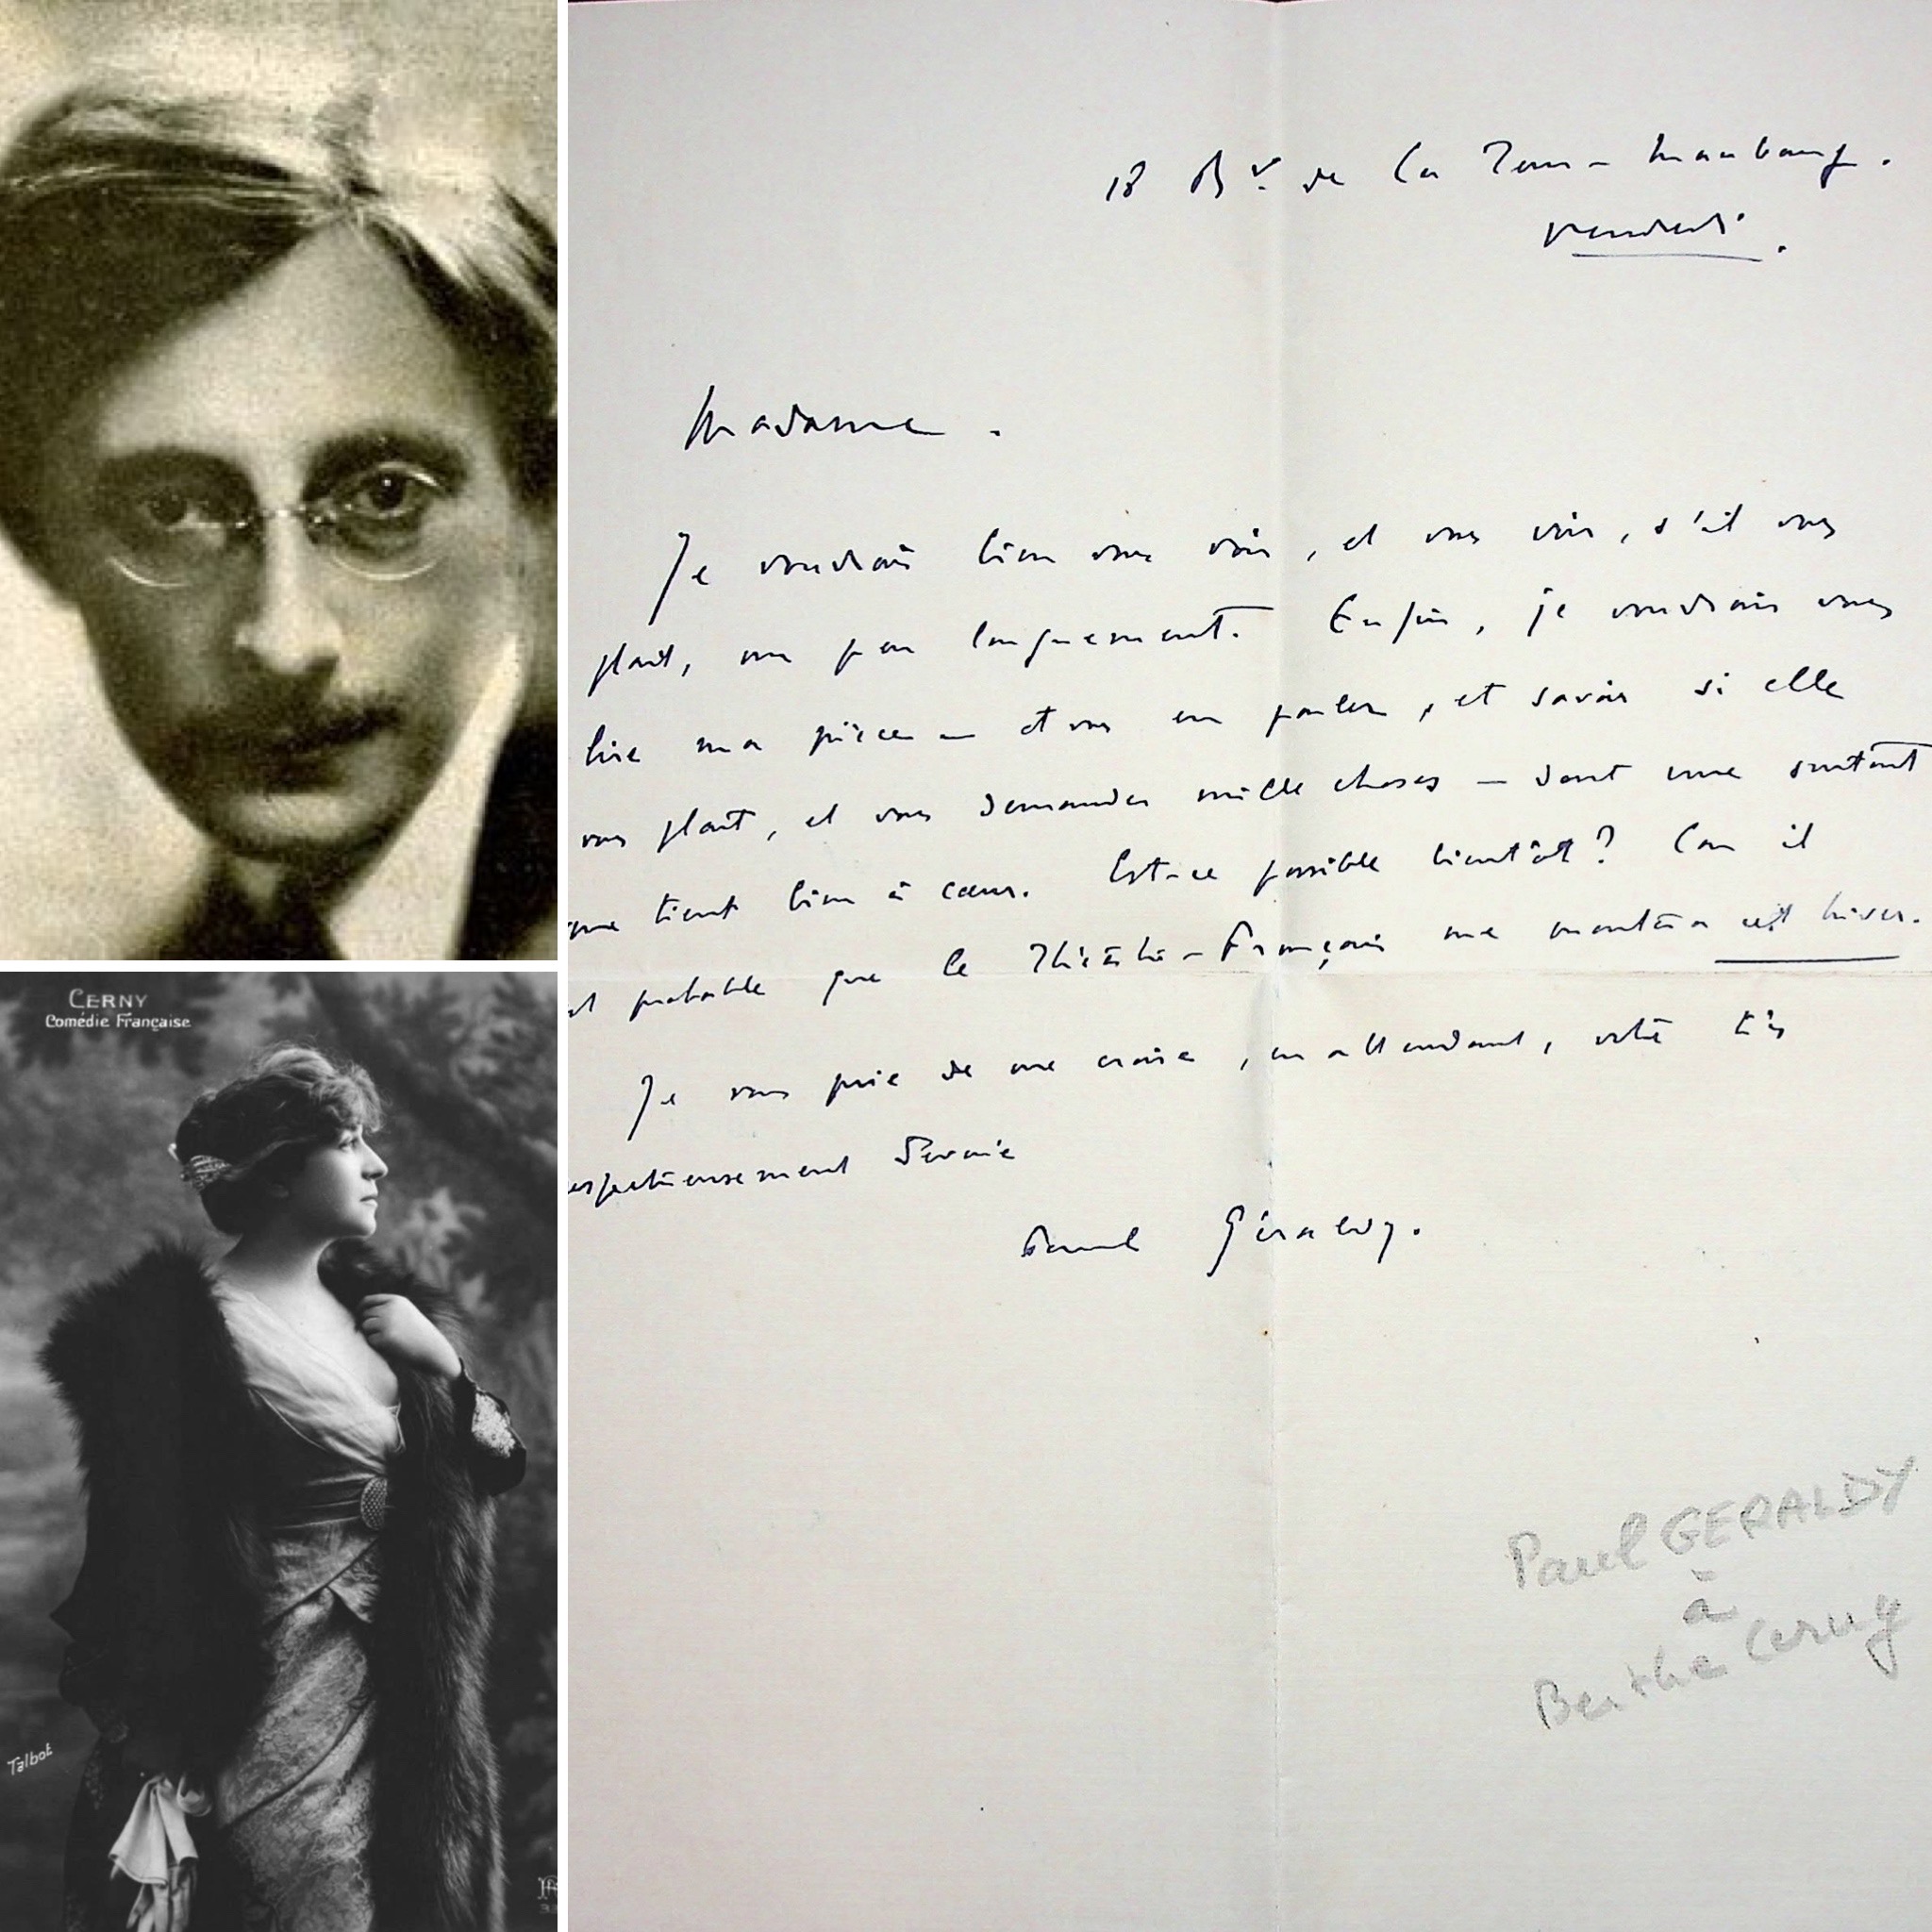 CERNY
Comédie Française
Talbot
18 Bd. de La Tour-Maubourg.
Vendredi.
Madame.
Je voudrais bien vous voir, et vous voir, s'il vous
plait, un peu longuement. Enfin, je voudrais vous
lire ma pièce — et vous en parler, et savoir si elle
vous plait, et vous demander mille choses — dont une surtout
me tient bien à cœur. Est-ce possible bientôt? Car il
est probable que le Théâtre-Français me montera cet hiver.
Je vous prie de me croire, en attendant, votre très
respectueusement dévoué
Paul Géraldy.
Paul GERALDY
à
Berthe Cerny